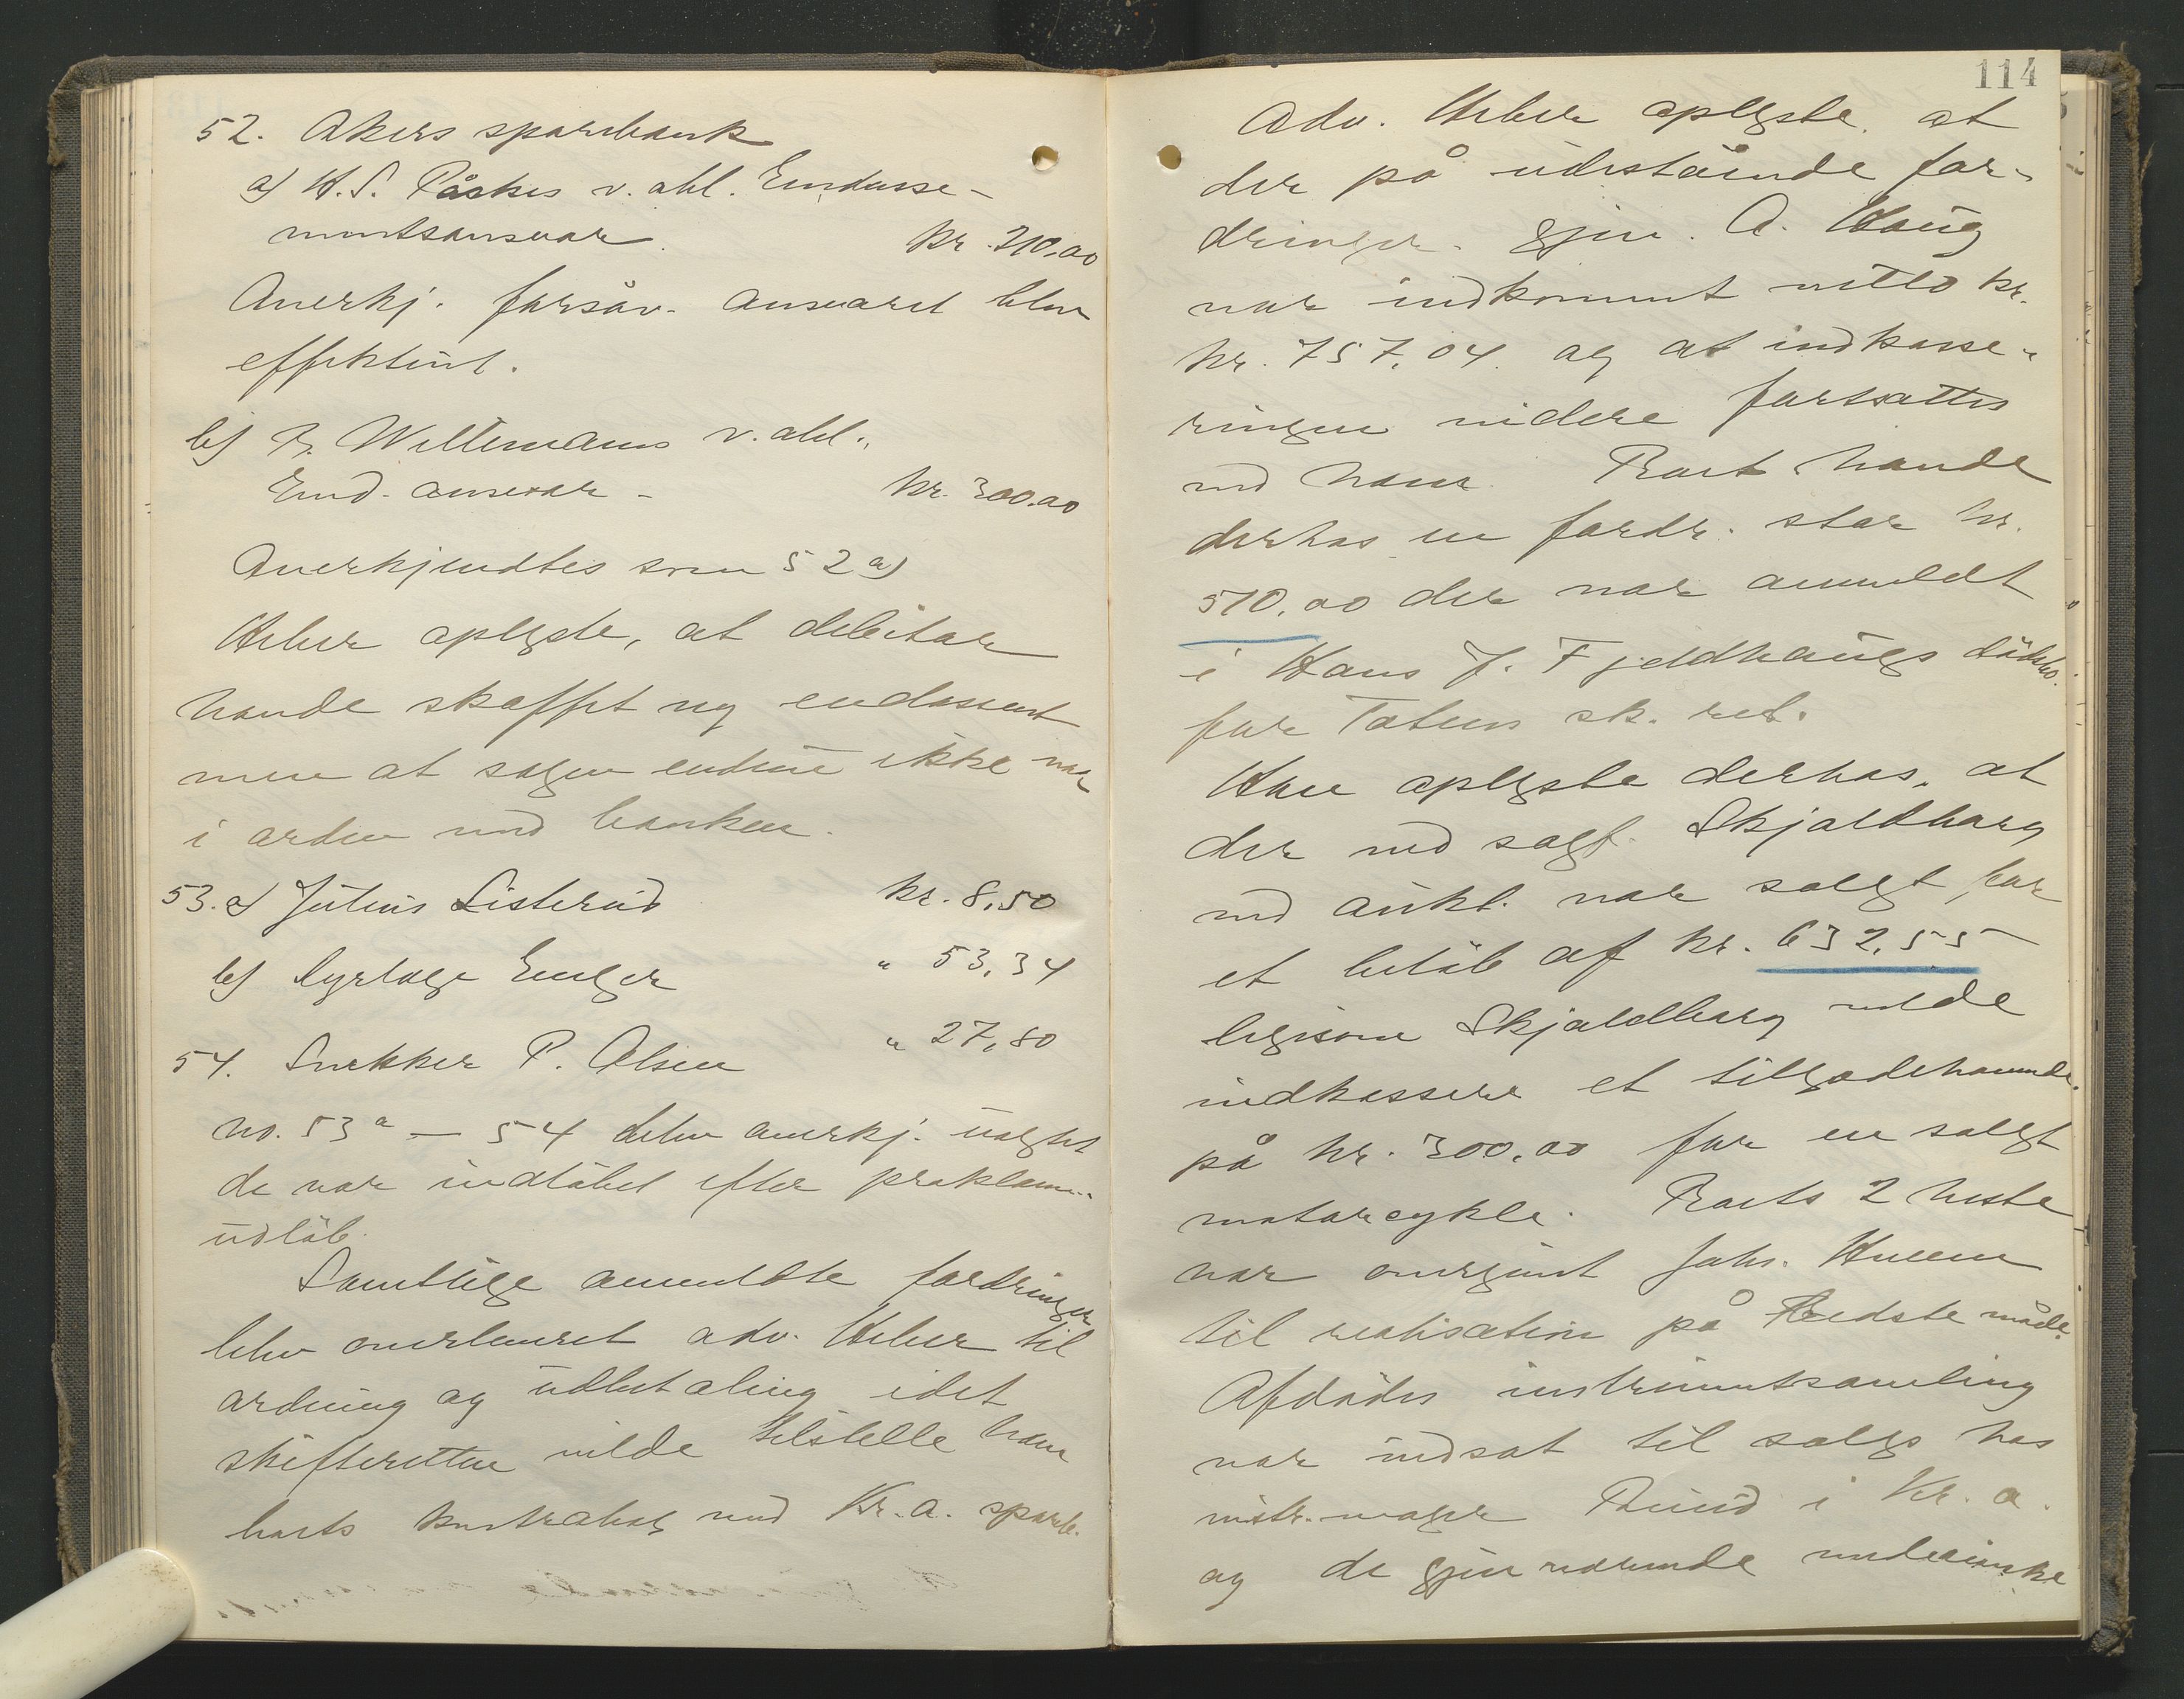 52. Akers sparebank
a) H. S. Påskes v. ahl. Endosse-
mentsansvar. kr. 210,00
Anerkj. forsåv. ansvaret blev
effektivt.
b) P. Willemanns v. ahl.
End. ansvar - kr. 300.00
Anerkjendtes som 52 a)
Heber oplyste, at debitor
havde skaffet ny endossent
men at sagen endnu ikke var
i orden med banken.
53. a) Julius Listerud kr. 8,50
b) dyrlæge Enger " 53,34
54. Snekker P. Olsen " 27,80
no. 53 a — 54 blev anerkj. uagtet
de var indløbet efter proklam..
udløb.
Samtlige anmeldte fordringer
blev overleveret adv. Heber til
ordning og udbetaling idet
skifteretten vilde tilstelle ham
boets kontrabog med Kr.a. spareb.
114
Adv. Heber oplyste. at
der på udestående for-
dringer. gjen. A. Haug
var indkommet netto kr.
kr. 757,04 og at indkasse-
ringen videre fortsattes
ved ham Boet havde
derhos en fordr. stor kr.
510,00 der var anmeldt
i Hans J. Fjeldhaugs dødsbo.
for Toten sk. ret.
Han oplyste derhos, at
der ved sagf. Skjoldborg
ved aukt. var solgt for
et beløb af kr. 632,55
ligesom Skjoldborg vilde
indkassere et tilgodehavende.
på kr. 300,00 for en solgt
motorcykle. Boets 2 heste
var overgivet Johs. Hveem
til realisation på bedste måde.
Afdødes instrumentsamling
var indsat til salgs hos
instr.mager Rund i Kr. a.
og de gjenværende